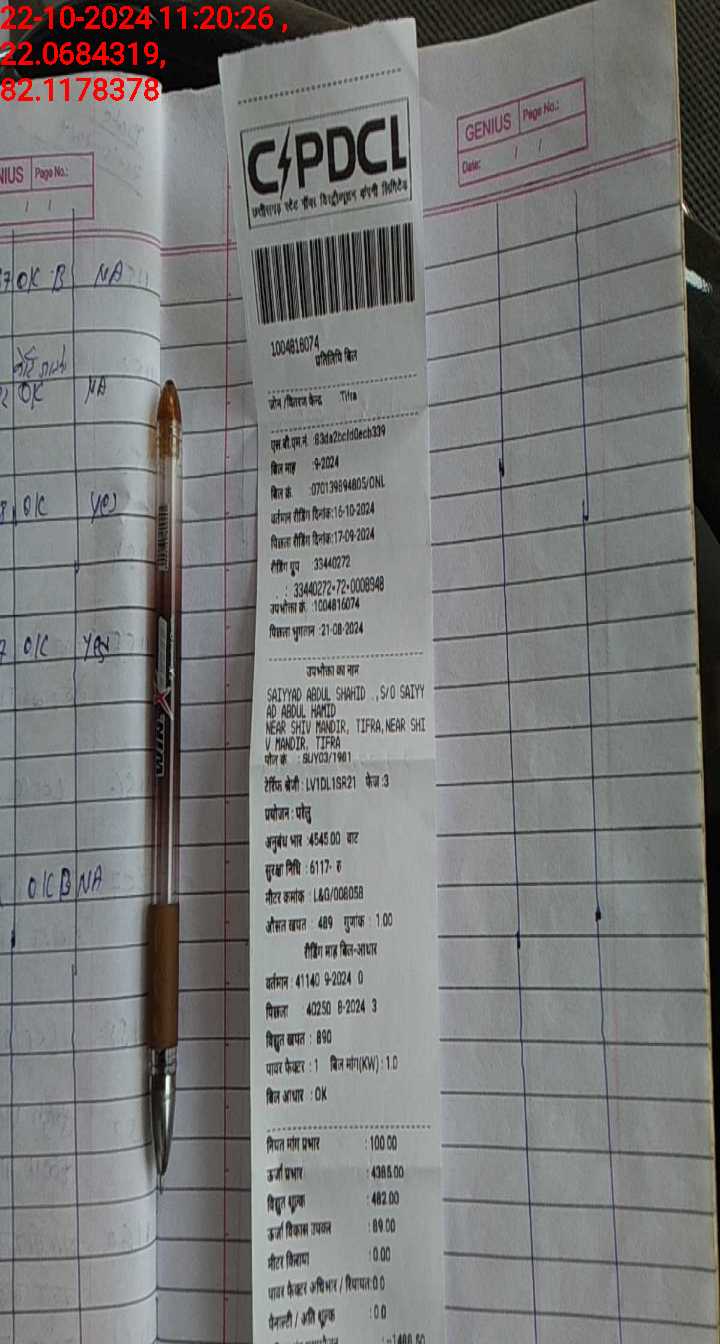 22-10-2024 11:20:26 ,
22.0684319,
82.1178378
NIUS Page No.:
GENIUS Page No.:
Date:
CSPDCL
छत्तीसगढ़ स्टेट पॉवर डिस्ट्रीब्यूशन कंपनी लिमिटेड
1004816074
प्रतिलिपि बिल
जोन /वितरण केन्द्र Tifra
एस.बी.एम.नं. :63da2bcfd0ecb339
बिल माह :9-2024
बिल क्रं. :070139894805/ONL
वर्तमान रीडिंग दिनांक:16-10-2024
पिछला रीडिंग दिनांक:17-09-2024
रीडिंग ग्रुप :33440272
: 33440272-72-0008948
उपभोक्ता क्रं. :1004816074
पिछला भुगतान :21-08-2024
उपभोक्ता का नाम
SAIYYAD ABDUL SHAHID .,S/O SAIYY
AD ABDUL HAMID
NEAR SHIV MANDIR, TIFRA,NEAR SHI
V MANDIR, TIFRA
पोल क्रं : SUY03/1981
टैरिफ श्रेणी : LV1DL1SR21 फेज :3
प्रयोजन : घरेलु
अनुबंध भार :4545.00 वाट
सुरक्षा निधि : 6117- रु
मीटर क्रमांक : L&G/008058
औसत खपत : 489 गुणांक : 1.00
रीडिंग माह बिल-आधार
वर्तमान : 41140 9-2024 0
पिछला 40250 8-2024 3
विद्युत खपत : 890
पावर फैक्टर : 1 बिल मांग(KW) : 1.0
बिल आधार : OK
नियत मांग प्रभार :100.00
ऊर्जा प्रभार :4385.00
विद्युत शुल्क :482.00
ऊर्जा विकास उपकर :89.00
मीटर किराया :0.00
पावर फैक्टर अधिभार / रियायत:0.0
पेनाल्टी / अति शुल्क :0.0
OK B NA
OK NA
OK Yes
OK Yes
OK B NA
WIN